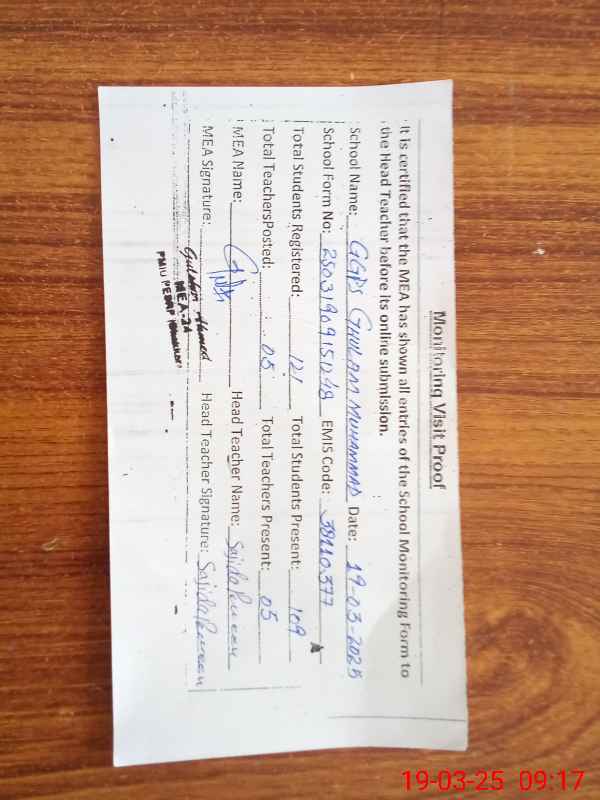 Monitoring Visit Proof
It is certified that the MEA has shown all entries of the School Monitoring Form to
the Head Teacher before its online submission.
School Name: GGPS GHULAM MUHAMMAD Date: 19-03-2025
School Form No: EMIS Code: 38110377
Total Students Registered: 121 Total Students Present: 109
Total TeachersPosted: 05 Total Teachers Present: 05
MEA Name: Head Teacher Name: Sajida Parveen
MEA Signature: Head Teacher Signature: Sajida Parveen
Gulshan Ahmed
MEA-24
19-03-25 09:17